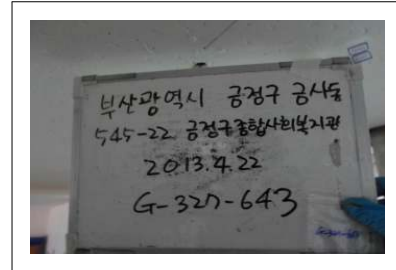 부산광역시 금정구 금사동
545-22 금정구종합사회복지관
2013.4.22
G-327-643